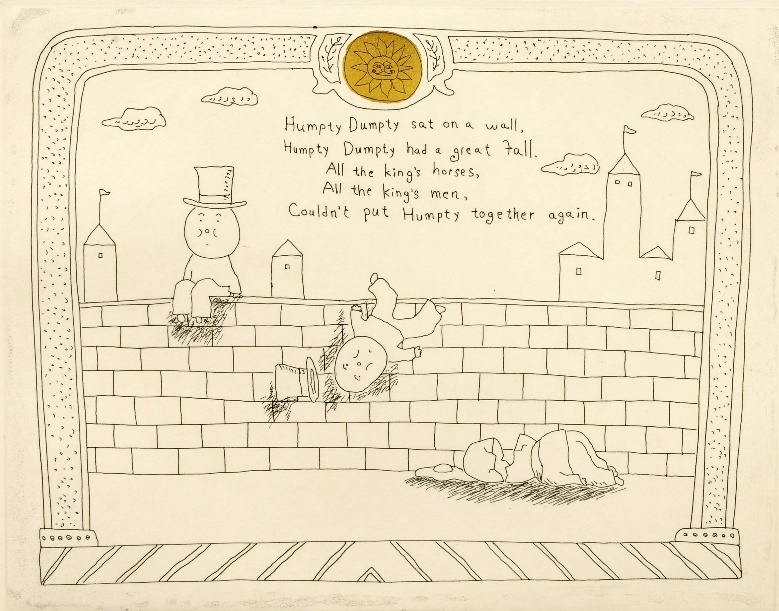 Humpty Dumpty sat on a wall,
Humpty Dumpty had a great fall.
All the king's horses,
All the king's men,
Couldn't put Humpty together again.